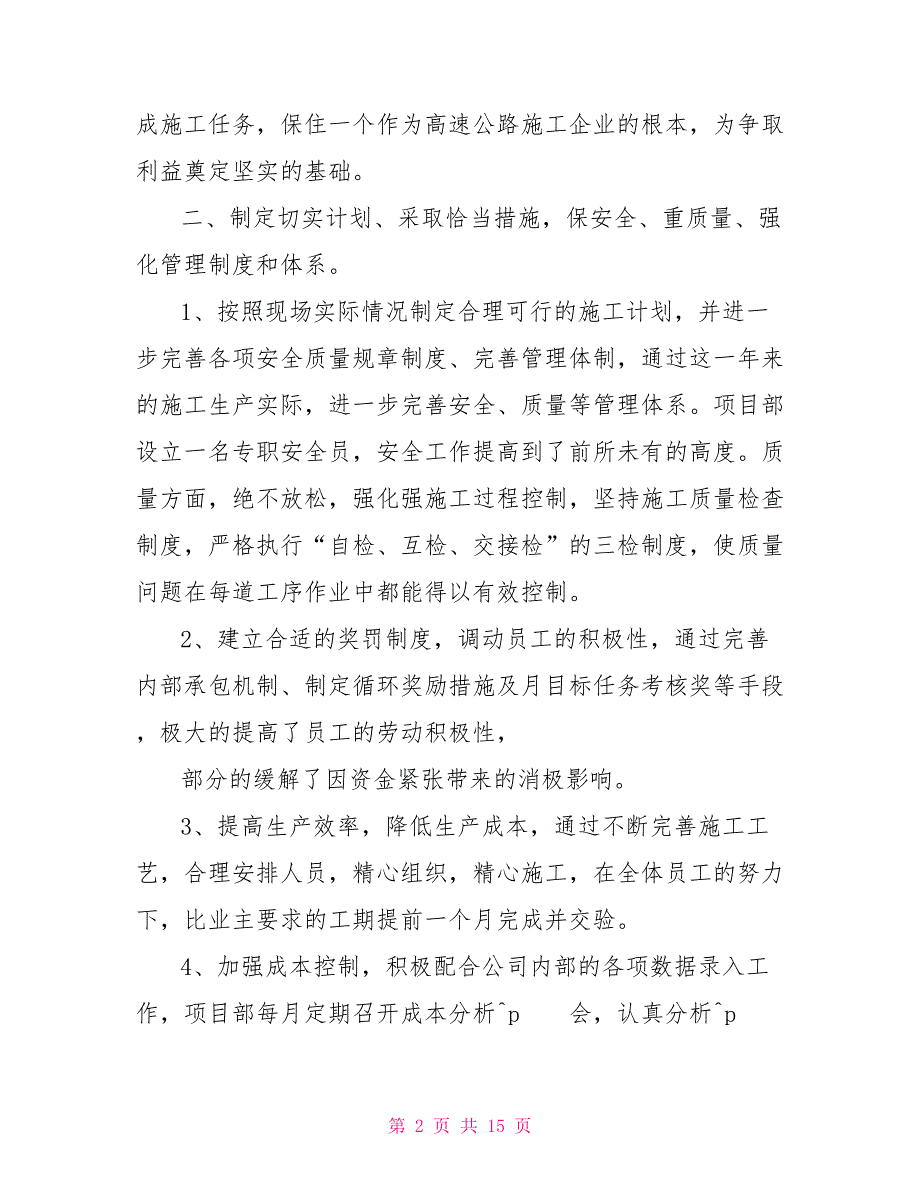 成施工任务，保住一个作为高速公路施工企业的根本，为争取
利益奠定坚实的基础。
二、制定切实计划、采取恰当措施，保安全、重质量、强
化管理制度和体系。
1、按照现场实际情况制定合理可行的施工计划，并进一
步完善各项安全质量规章制度、完善管理体制，通过这一年来
的施工生产实际，进一步完善安全、质量等管理体系。项目部
设立一名专职安全员，安全工作提高到了前所未有的高度。质
量方面，绝不放松，强化强施工过程控制，坚持施工质量检查
制度，严格执行“自检、互检、交接检”的三检制度，使质量
问题在每道工序作业中都能得以有效控制。
2、建立合适的奖罚制度，调动员工的积极性，通过完善
内部承包机制、制定循环奖励措施及月目标任务考核奖等手段
，极大的提高了员工的劳动积极性，
部分的缓解了因资金紧张带来的消极影响。
3、提高生产效率，降低生产成本，通过不断完善施工工
艺，合理安排人员，精心组织，精心施工，在全体员工的努力
下，比业主要求的工期提前一个月完成并交验。
4、加强成本控制，积极配合公司内部的各项数据录入工
作，项目部每月定期召开成本分析^p 会，认真分析^p
第 2 页 共 15 页